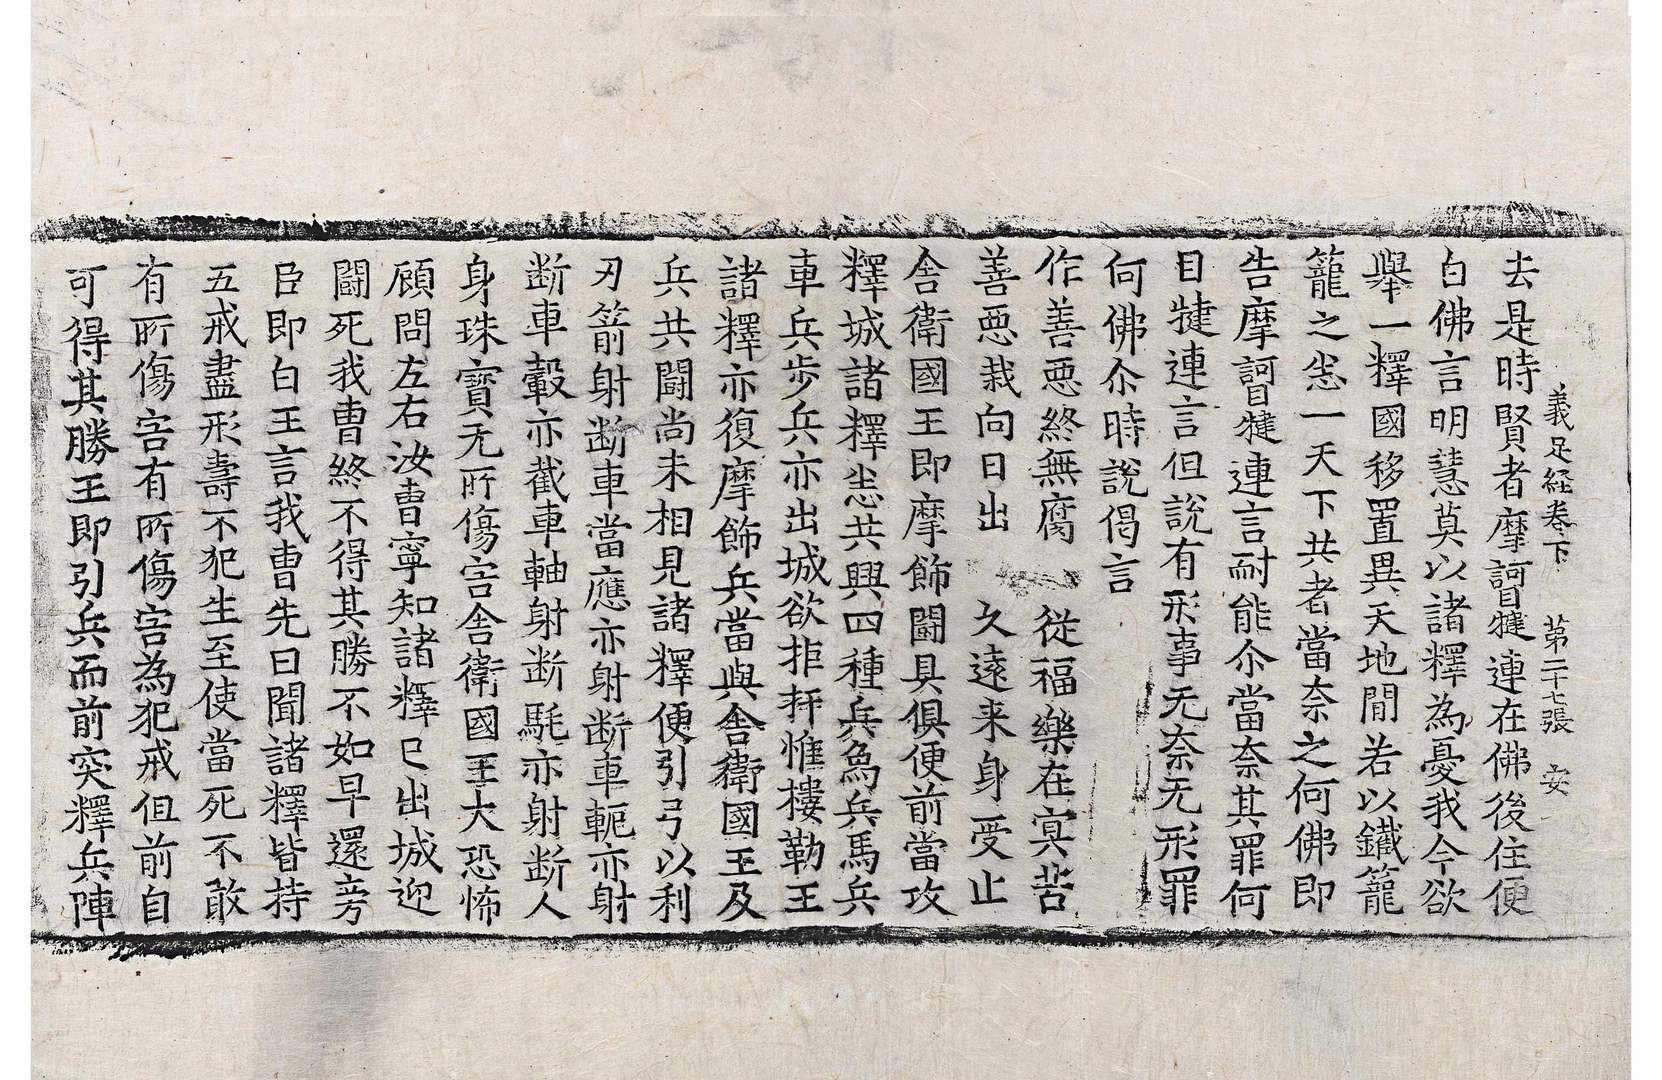 義足経卷下　第二十七張　安
去是時賢者摩訶目犍連在佛後住便
白佛言明慧莫以諸釋為憂我今欲
舉一釋國移置異天地閒若以鐵籠
籠之㳟一天下共者當奈之何佛即
告摩訶目犍連言耐能尒當奈其罪何
目犍連言但說有形事无奈无形罪
何佛尒時說偈言
作善恶終無腐　從福樂在冥苦
善恶栽向日出　久遠来身受止
舍衛國王即摩飾闘具俱便前當攻
釋城諸釋㳟共興四種兵象兵馬兵
車兵步兵亦出城欲拒捍惟樓勒王
諸釋亦復摩飾兵當與舍衛國王及
兵共闘尚未相見諸釋便引弓以利
刃箭射断車當應亦射断車軛亦射
断車轂亦截車軸射断髦亦射断人
身珠寶无所傷害舍衛國王大恐怖
顧問左右汝曹寧知諸釋已出城迎
闘死我曹終不得其勝不如早還旁
臣即白王言我曹先曰聞諸釋皆持
五戒盡形壽不犯生至使當死不敢
有所傷害有所傷害為犯戒但前自
可得其勝王即引兵而前突釋兵陣